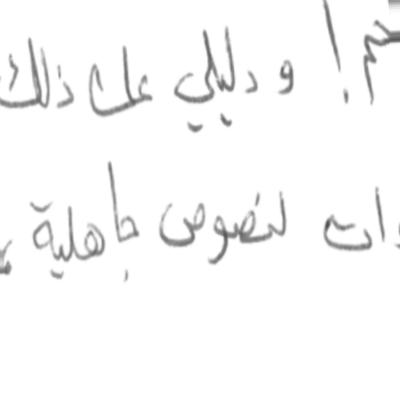 ! و دليلي على ذلك
ات لنصوص جاهلية